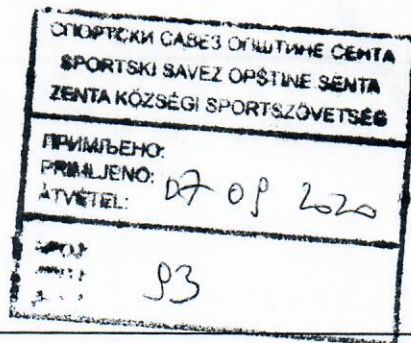 СПОРТСКИ САВЕЗ ОПШТИНЕ СЕНТА
SPORTSKI SAVEZ OPŠTINE SENTA
ZENTA KÖZSÉGI SPORTSZÖVETSÉG
ПРИМЉЕНО:
PRIMLJENO:
ÁTVÉTEL: 07 09 2020
93